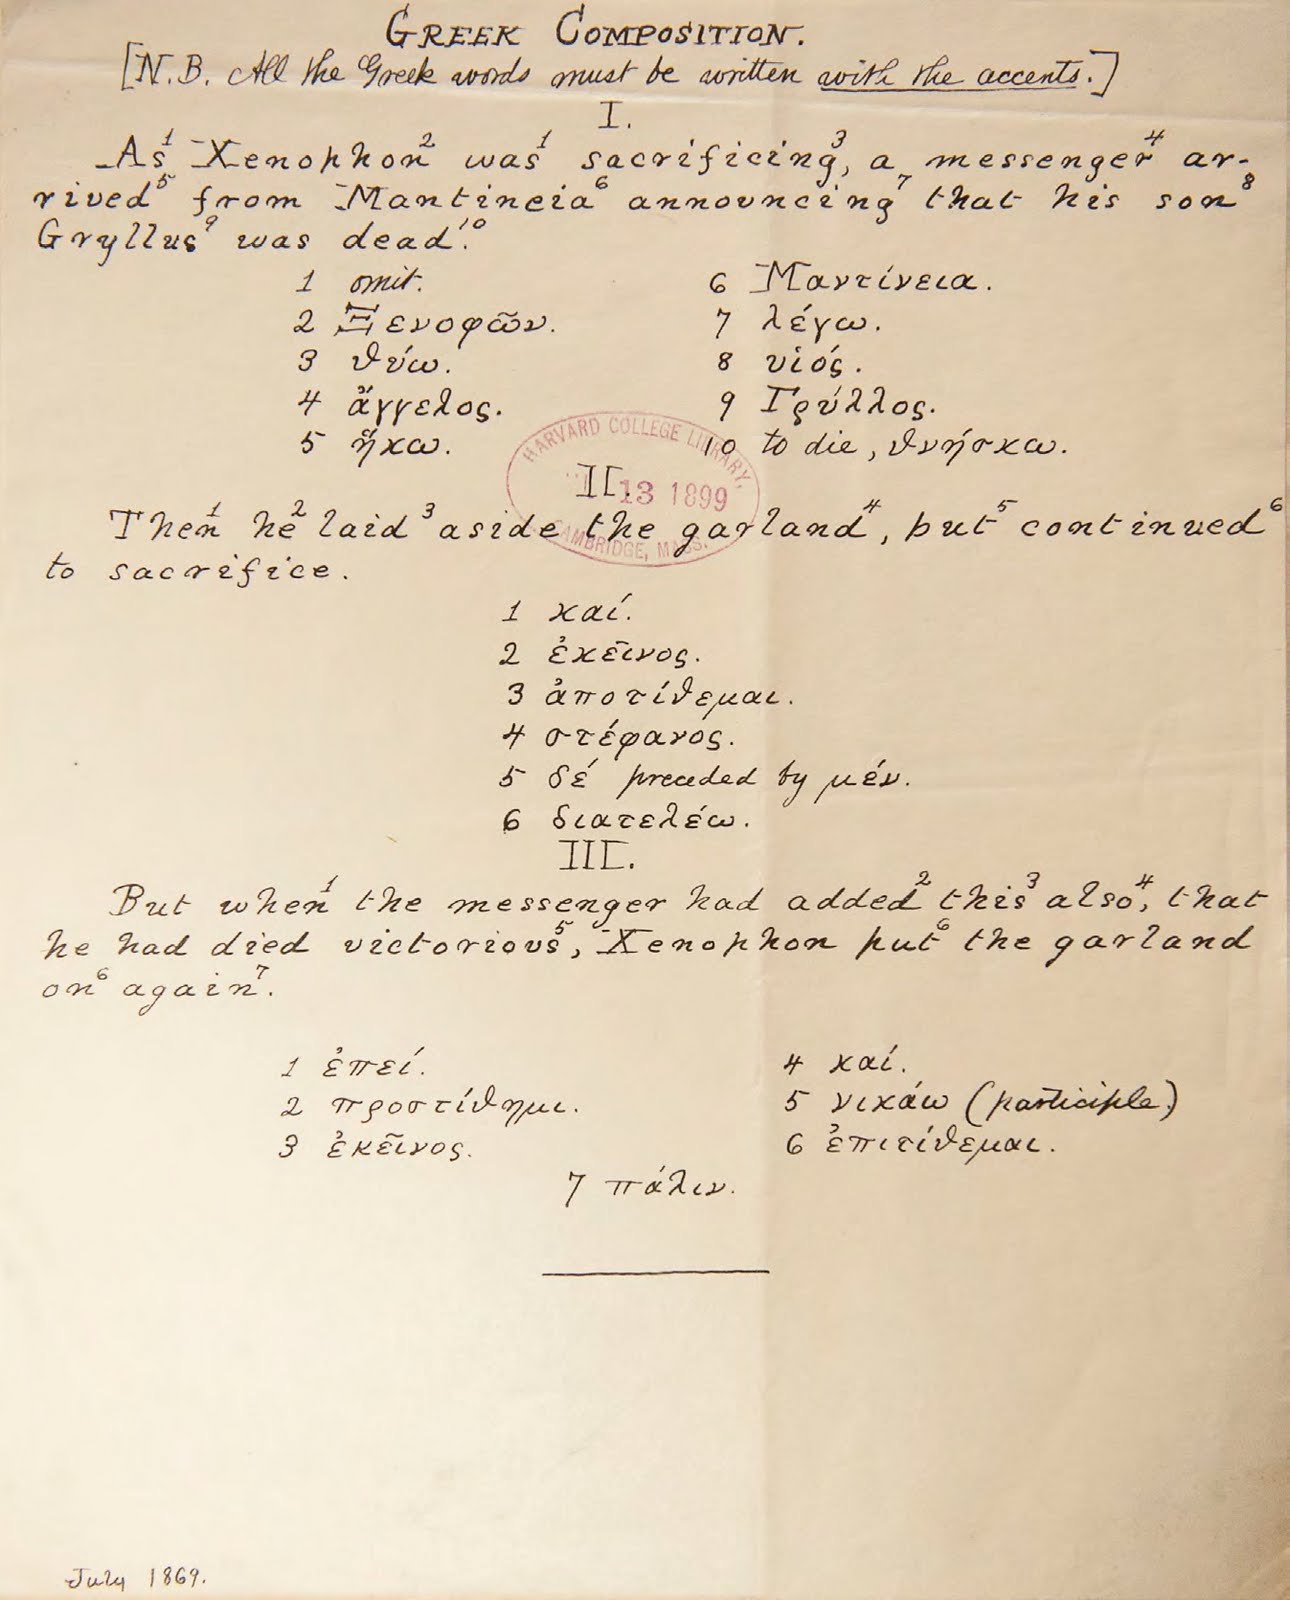 GREEK COMPOSITION.
[N.B. All the Greek words must be written with the accents.]
I.
As¹ Xenophon² was¹ sacrificing³, a messenger⁴ ar-
rived⁵ from Mantineia⁶ announcing⁷ that his son⁸
Gryllus⁹ was dead¹⁰.
1 omit.
2 Ξενοφῶν.
3 θύω.
4 ἄγγελος.
5 ἥκω.
6 Μαντίνεια.
7 λέγω.
8 υἱός.
9 Γρύλλος.
10 to die, θνήσκω.
HARVARD COLLEGE LIBRARY,
13 1899
CAMBRIDGE, MASS.
II.
Then¹ he² laid³ aside the garland⁴, but⁵ continued⁶
to sacrifice.
1 καί.
2 ἐκεῖνος.
3 ἀποτίθεμαι.
4 στέφανος.
5 δέ preceded by μέν.
6 διατελέω.
III.
But when¹ the messenger had added² this³ also⁴, that
he had died victorious⁵, Xenophon put⁶ the garland
on⁶ again⁷.
1 ἐπεί.
2 προστίθημι.
3 ἐκεῖνος.
4 καί.
5 νικάω (participle.)
6 ἐπιτίθεμαι.
7 πάλιν.
July 1869.